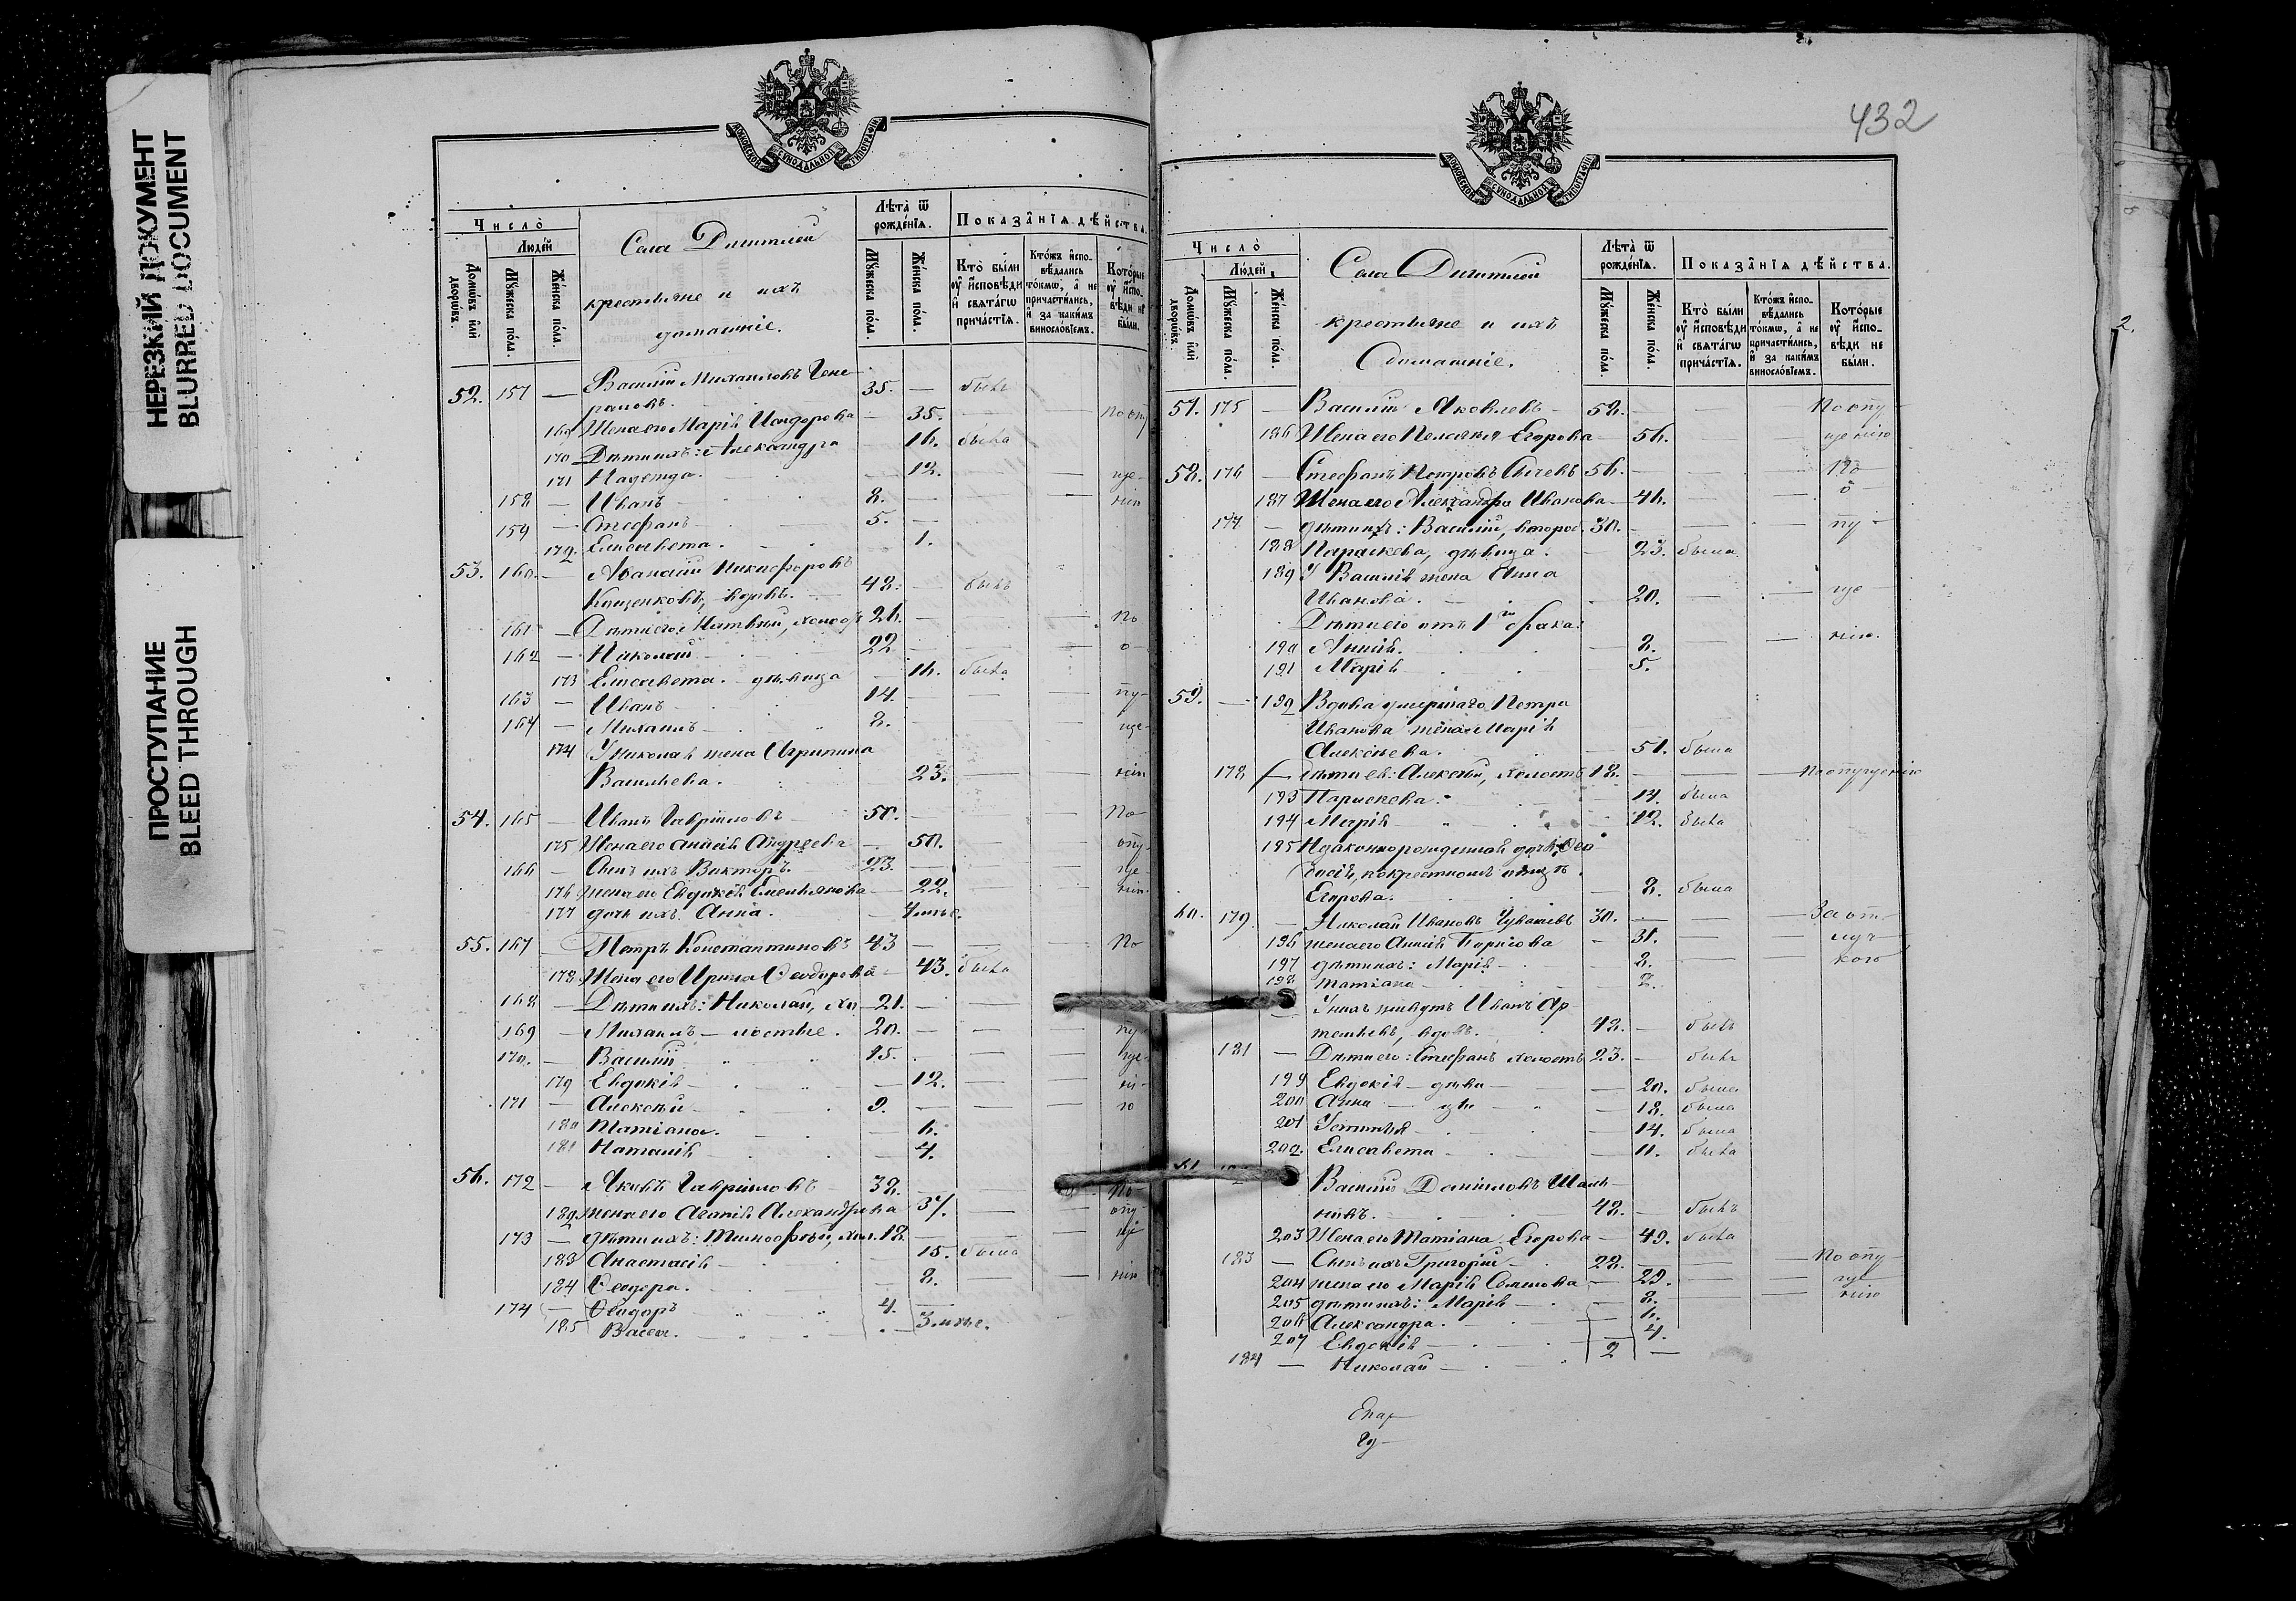 НЕРЕЗКИЙ ДОКУМЕНТ
BLURRED DOCUMENT
ПРОСТУПАНИЕ
BLEED THROUGH
МОСКОВСКОЙ СУНОДАЛЬНОЙ ТИПОГРАФІИ
Число̀
Людѣй
Домѡ́въ и҆лѝ дворѡ́въ.
Мꙋ́жеска по́ла.
Же́нска по́ла.
Села
крестьяне и ихъ
домашніе.
Лѣта̀ ѿ рожде́нїѧ.
Мꙋ́жеска по́ла.
Же́нска по́ла.
Показа̑нїѧ дѣ́йства.
Кто̀ бы́ли оу҆ и҆сповѣ́ди и҆ свѧта́гѡ прича́стїѧ.
Кто́жъ и҆спо-вѣ́дались то́кмѡ, а҆ не причасти́лись, и҆ за каки́мъ виносло́вїемъ.
Кото́рые оу҆ и҆спо-вѣ́ди не бы́ли.
52. 157 — Василій Михаиловъ Гене- 35. — былъ
раловъ.
169 Жена его Марія Исидорова — 35. — — по опу
170 Дѣти ихъ: Александра — 16. была
171 Надежда. — 12. — — ще-
158 — Иванъ — 8. — — — нію
159 — Стефанъ — 5. —
172. Елисавета. — 1.
53. 160. — Аѳанасій Никифоровъ
вдовъ. — 48. — былъ
161 — Дѣти его: Матвѣй, холостъ 26. — — — по
162 — Николай — 22 — — — о-
173 Елисавета. — дѣвица — 16. была
163 — Иванъ — 14. — — — пу-
164 — Михаилъ — 8. — — — ще-
174 У Николая жена Агрипина
Васильева. 23. — — нію
54. 165 — Иванъ Гавріиловъ — 50. — — По
175 Жена его Анисія Андреева — 50. — — опу-
166 — Сынъ ихъ Викторъ. — 23. — — ще-
176 жена его Евдокія Емельянова — 22. — — нію.
177 дочь ихъ Анна. — 4 мѣс.
55. 167 — Петръ Константиновъ 43 — — — По
178. Жена его Ирина Ѳеодорова — 43. была
168 — Дѣти ихъ: Николай, хо- 21. — —
169 — Михаилъ — лостые. 20. — — пу-
170. — Василій 15. — — ще-
179 Евдокія — 12. — — ні-
171 — Алексѣй — 9. — — — ю
180 Татіана. — 6.
181 Наталія — 4.
56. 172 — Яковъ Гавріиловъ — 38. — — По-
182 жена его Агапія Александрова 37. — — опу-
173 — дѣти ихъ: Тимоѳей, хол. 18. — — ще
183 Анастасія — 15. была
184 Ѳеодора. — 8. — — нію
174 — Ѳеодоръ 4. —
185 Васса. — 3 мѣс.
432
МОСКОВСКОЙ СУНОДАЛЬНОЙ ТИПОГРАФІИ
Число̀
Людѣй
Домѡ́въ и҆лѝ дворѡ́въ.
Мꙋ́жеска по́ла.
Же́нска по́ла.
Села
крестьяне и ихъ
домашніе.
Лѣта̀ ѿ рожде́нїѧ.
Мꙋ́жеска по́ла.
Же́нска по́ла.
Показа̑нїѧ дѣ́йства.
Кто̀ бы́ли оу҆ и҆сповѣ́ди и҆ свѧта́гѡ прича́стїѧ.
Кто́жъ и҆спо-вѣ́дались то́кмѡ, а҆ не причасти́лись, и҆ за каки́мъ виносло́вїемъ.
Кото́рые оу҆ и҆спо-вѣ́ди не бы́ли.
57. 175 — Василій Яковлевъ — 58. — — По опу-
186 Жена его Пелагія Егорова — 56. — — щенію
58. 176 — Стефанъ Петровъ 56. — — — По
187 Жена его Александра Иванова — 46. — — о
177 — дѣти ихъ: Василій, 30. — — — пу-
188 Параскева, дѣвица. — 23. была
189 У Василія жена Анна
Иванова. — 20. — — ще
Дѣти его отъ 1го брака:
190 Анна. — 8. — — нію.
191 Марія — 5.
59. — 192 Вдова умершаго Петра
Иванова жена Марія
Алексѣева. — 51. была
178 — дѣти ея: Алексѣй, холостъ 18. — — — По опущенію
193 Параскева. — 14. была
194 Марія — 12. была
195 Незаконнорожденная дочь
по крестному отцу
Егорова. — 8. была
60. 179 — Николай Ивановъ 30. — — — За от-
196 жена его Анисія Борисова — 31. — — луч-
197 дѣти ихъ: Марія — 8. — — кою
198 Татіана — 2.
У нихъ живутъ Иванъ Ар
темьевъ, вдовъ. 48. — былъ
181 — Дѣти его: Стефанъ холостъ 23. — былъ
199 Евдокія — дѣви — 20. была
200 Анна — цы — 18. была
201 Устинья — 14. была
202. Елисавета — 11. была
61. Василій Даніиловъ
42. — былъ
203 Жена его Татіана Егорова — 49. была
183 — Сынъ ихъ Григорій — 28. — — — По опу
204 жена его Марія Семенова — 29. — — ще-
205 дѣти ихъ: Марія — 8. — — нію
206 Александра. — 6.
207 Евдокія — 4.
184 — Николай — 2 —